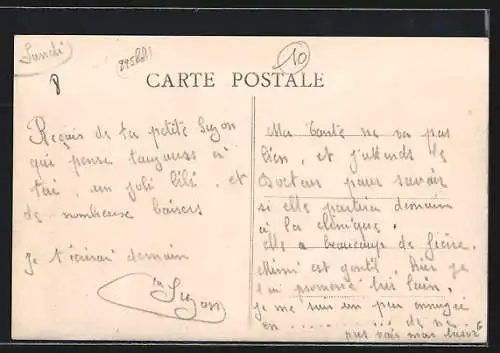 Lundi
10
CARTE POSTALE
Reçois de ta petite Suzon
qui pense toujours à
toi, un joli bibi, et
de nombreux baisers
Je t'écrirai demain
ta Suzon
Ma Tante ne va pas
bien, et j'attends le
Docteur pour savoir
si elle partira demain
à la clinique.
elle a beaucoup de fièvre.
Mimi est gentil, hier je
l'ai promené très loin.
je me suis un peu ennuyée
en ............ de ne
pas voir mon